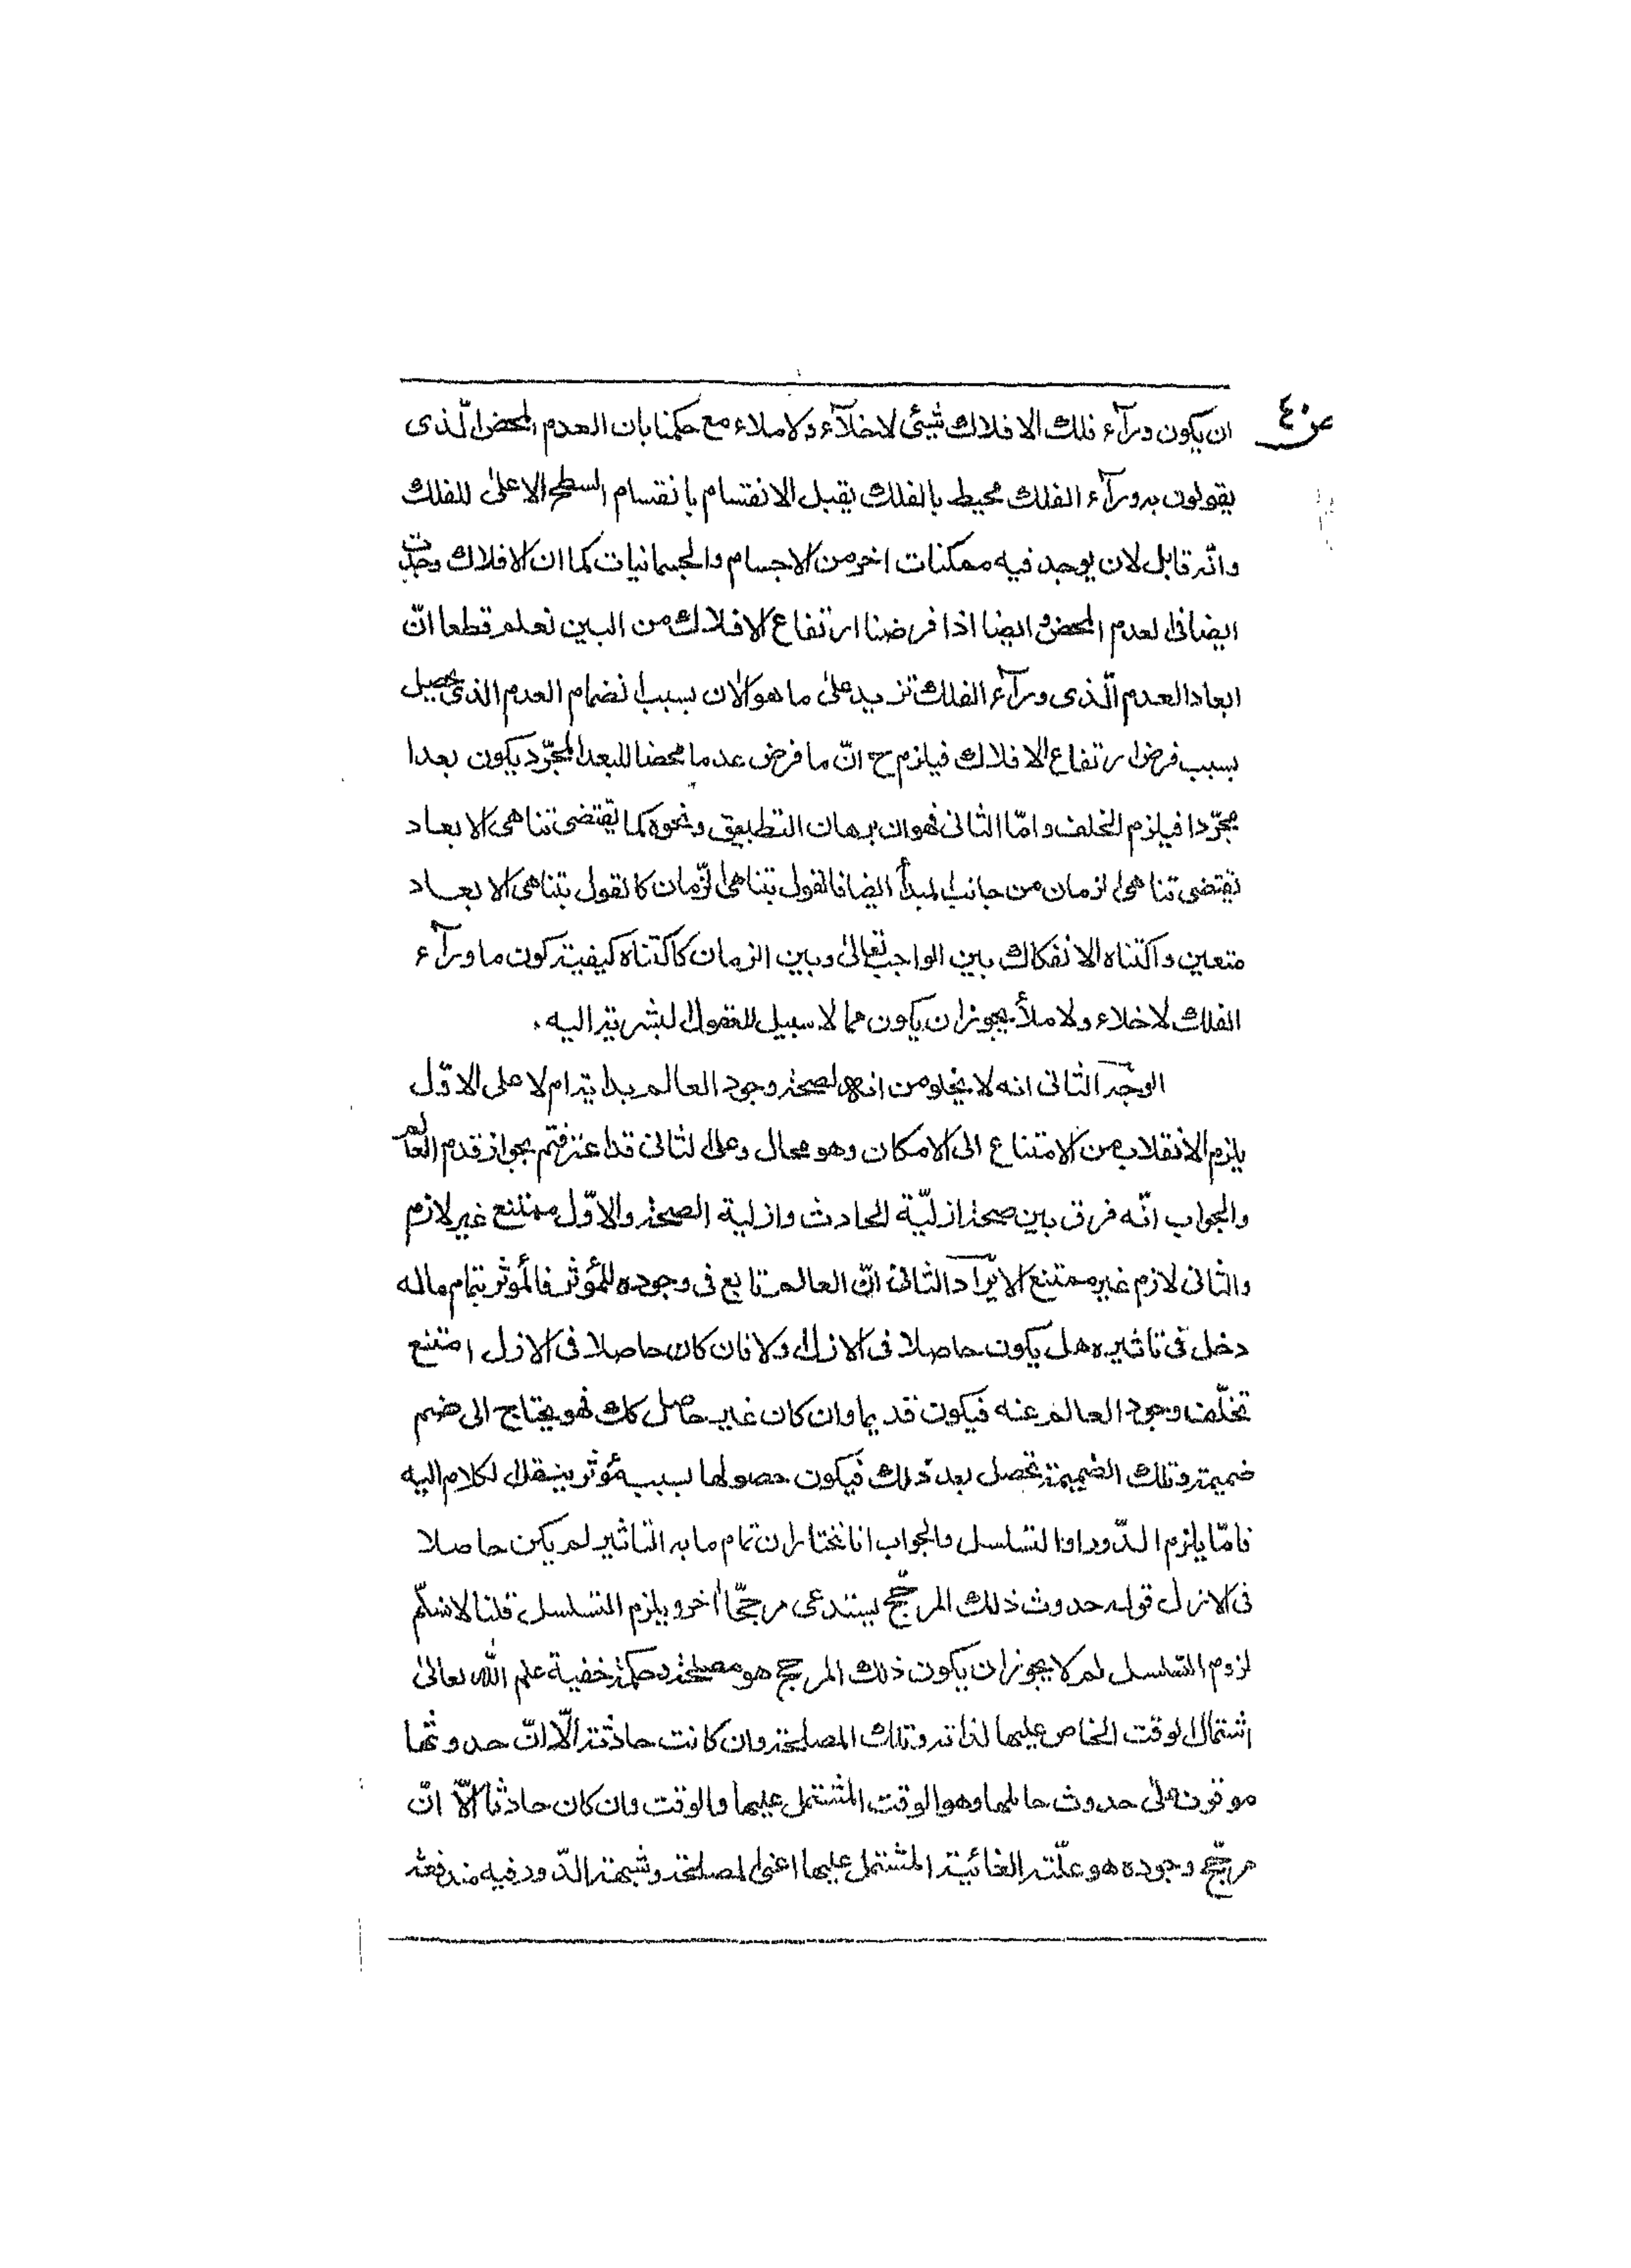 ص٤٠
ان يكون ورآء فلك الافلاك شيئ لاخلآء ولاملاء مع حكمنا بان العدم المحض الّذى
يقولون به ورآء الفلك محيط بالفلك يقبل الانقسام بانقسام السطح الاعلى للفلك
وانّه قابل لان يوجد فيه ممكنات اخر من الاجسام والجسمانيات كما ان الافلاك وجدت
ايضا فى العدم المحض وايضا اذا فرضنا ارتفاع الافلاك من البين نعلم قطعا انّ
ابعاد العدم الّذى ورآء الفلك تزيد على ما هو الآن بسبب انضمام العدم الذى يحصل
بسبب فرض ارتفاع الافلاك فيلزم ح انّ ما فرض عدما محضا للبعد المجرّد يكون بعدا
مجرّدا فيلزم الخلف وامّا الثانى فهو ان برهان التطبيق ونحوه كما يقتضى تناهى الابعاد
يقتضى تناهى الزمان من جانب المبدأ ايضا فالقول بتناهى الزّمان كالقول بتناهى الابعاد
متعين واكتناه الانفكاك بين الواجب تعالى وبين الزمان كاكتناه كيفية كون ما ورآء
الفلك لاخلاء ولاملأ يجوز ان يكون مما لا سبيل للعقول البشرية اليه.
الوجه الثانى انه لا يخلو من انه لصحة وجود العالم بداية ام لا على الاوّل
يلزم الانقلاب من الامتناع الى الامكان وهو محال وعلى الثانى قد اعترفتم بجواز قدم العالم
والجواب انّه فرق بين صحة ازليّة الحادث وازلية الصحة والاوّل ممتنع غير لازم
والثانى لازم غير ممتنع الايراد الثانى انّ العالم تابع فى وجوده للمؤثر فالمؤثر بتمام ماله
دخل فى تاثيره هل يكون حاصلا فى الازل اولا فان كان حاصلا فى الازل امتنع
تخلّف وجود العالم عنه فيكون قديما وان كان غير حاصل كك فهو يحتاج الى ضم
ضميمة وتلك الضميمة تحصل بعد ذلك فيكون حصولها بسبب مؤثر ينتقل الكلام اليه
فامّا يلزم الدّور او التسلسل والجواب انا نختار ان تمام ما به التاثير لم يكن حاصلا
فى الازل قوله حدوث ذلك المرجّح يستدعى مرجّحا أخر ويلزم التسلسل قلنا لا نسلّم
لزوم التسلسل لم لا يجوز ان يكون ذلك المرجح هو مصلحة وحكمة خفية علم الله تعالى
اشتمال الوقت الخاص عليها لذاته وتلك المصلحة وان كانت حادثة الّا انّ حدوثها
موقوف على حدوث حاملها وهو الوقت المشتمل عليها والوقت وان كان حادثا الّا انّ
مرجّح وجوده هو علّته الغائية المشتمل عليها اعنى المصلحة وشبهة الدّور فيه مندفعة